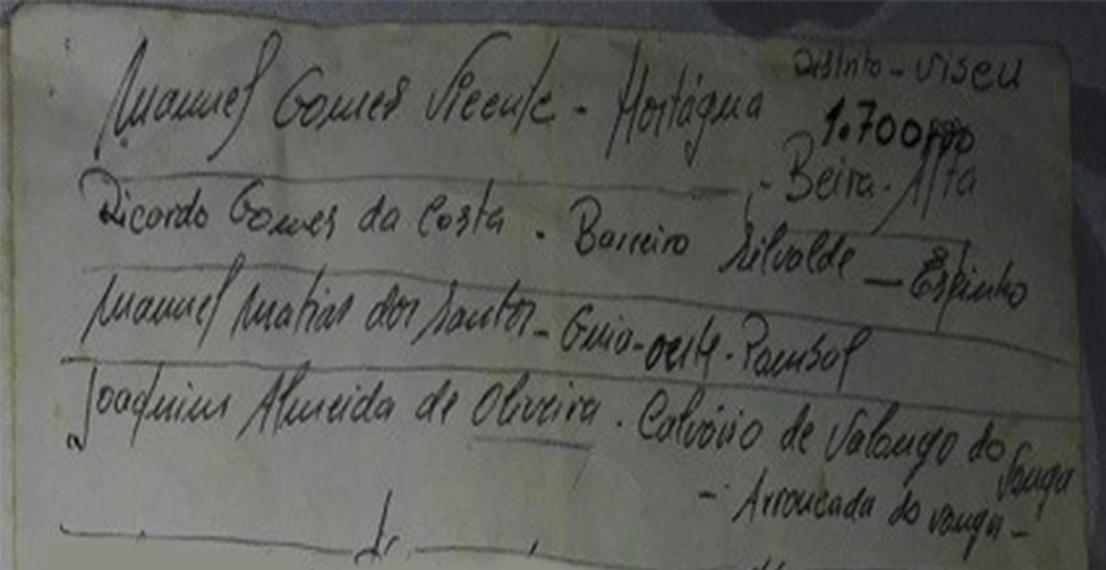 Manuel Gomes Vicente - Mortágua
Distrito - Viseu
1.700
- Beira - Alta
Ricardo Gomes da Costa - Barreiro Silvalde — Espinho
Manuel Matias dos Santos - Guia - oeste - Pombal
Joaquim Almeida de Oliveira . Calvário de Valongo do Vouga
- Arrancada do Vouga -